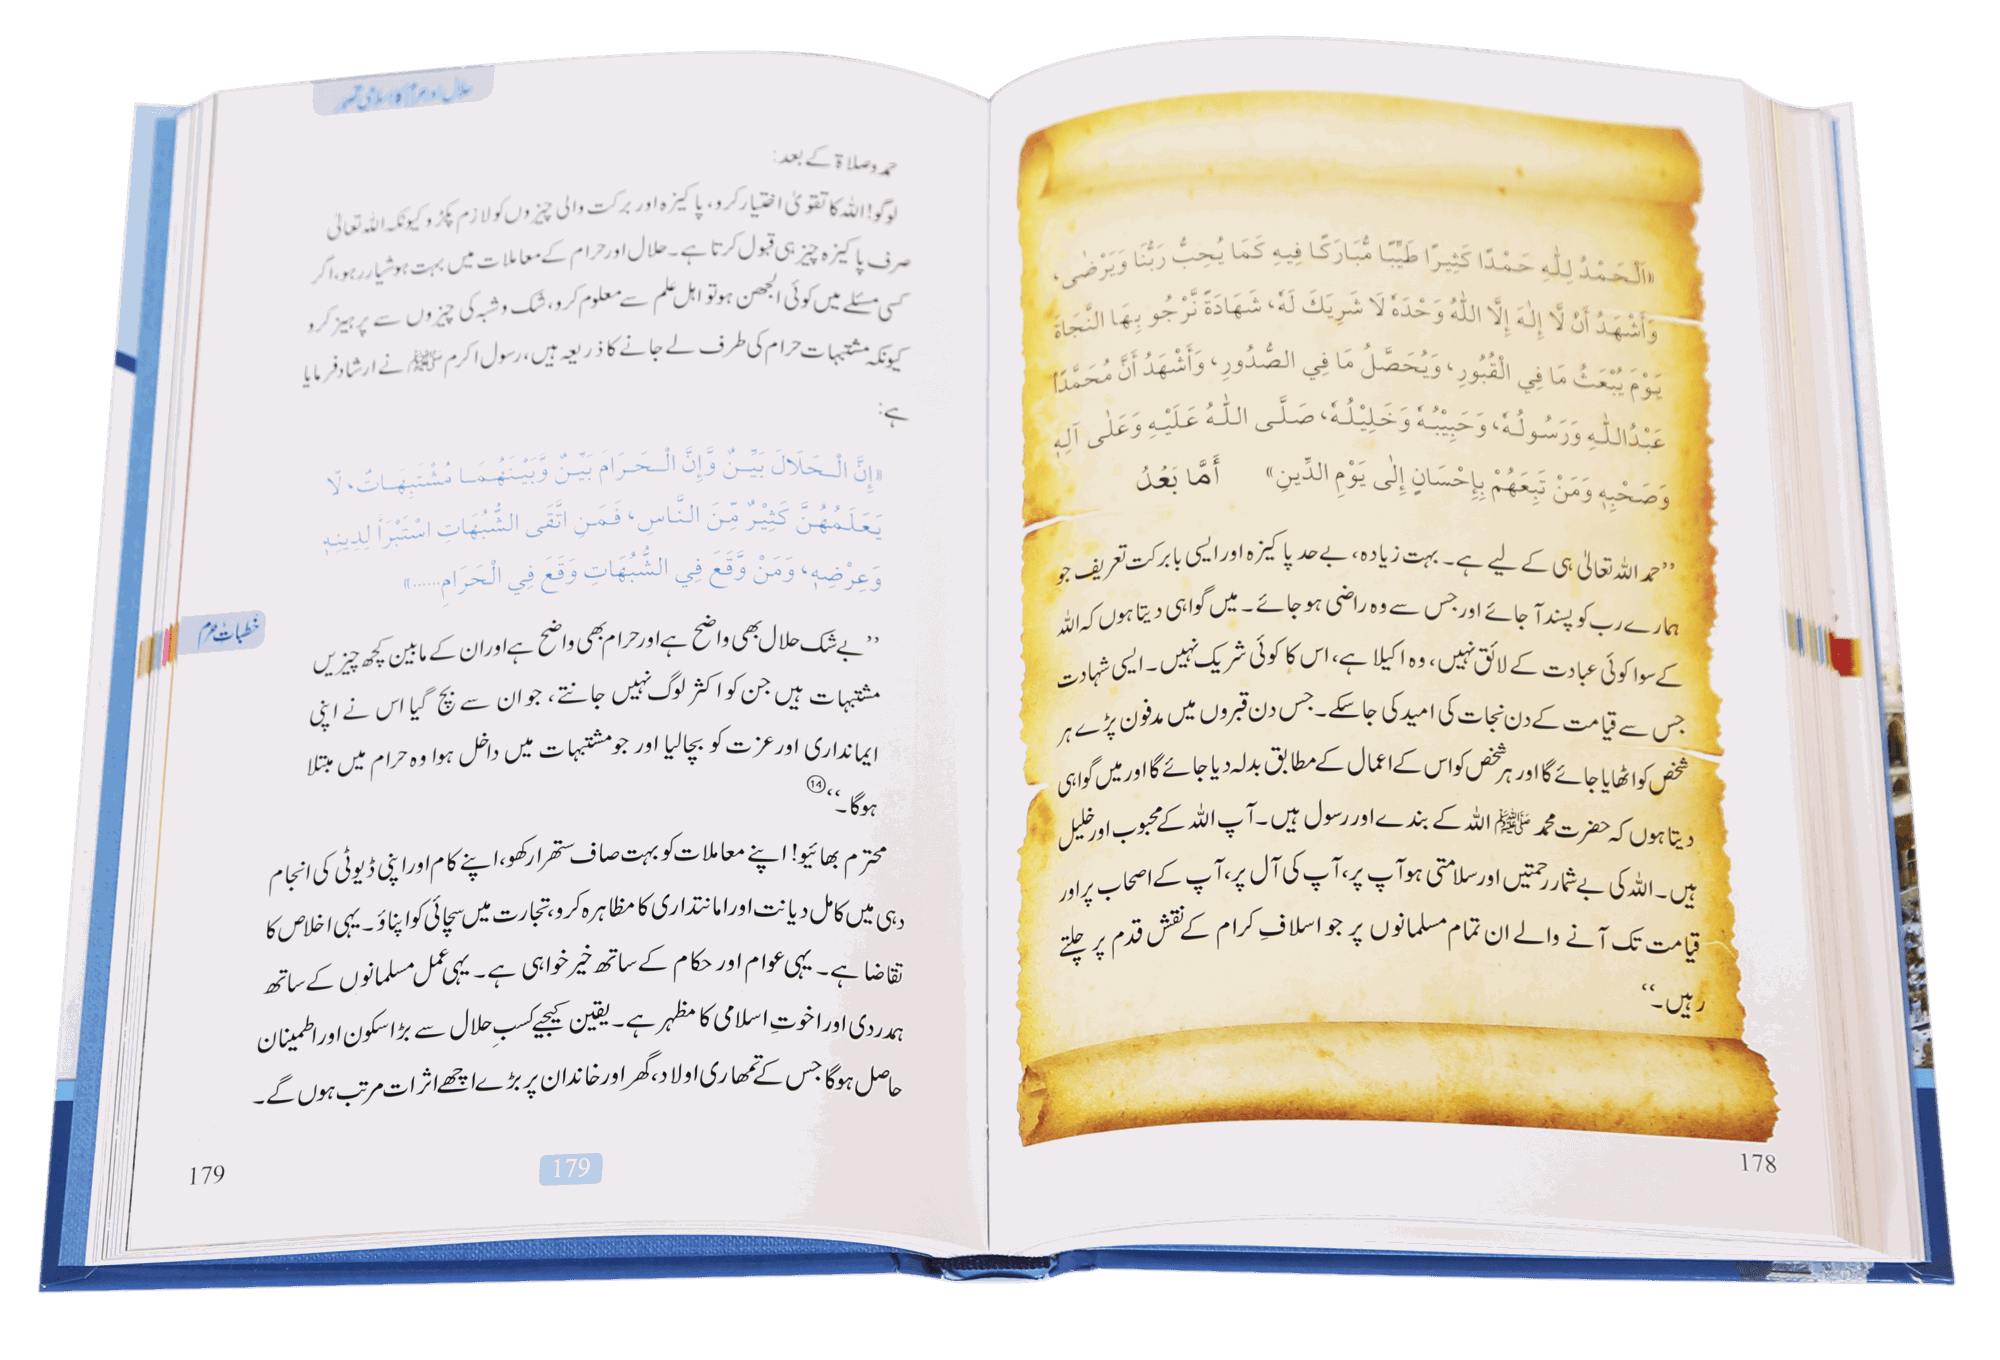 «اَلْحَمْدُ لِلّٰهِ حَمْدًا كَثِيرًا طَيِّبًا مُّبَارَكًا فِيهِ كَمَا يُحِبُّ رَبُّنَا وَيَرْضٰى،
وَأَشْهَدُ أَنْ لَّا إِلٰهَ إِلَّا اللّٰهُ وَحْدَهٗ لَا شَرِيكَ لَهٗ، شَهَادَةً نَّرْجُو بِهَا النَّجَاةَ
يَوْمَ يُبْعَثُ مَا فِي الْقُبُورِ، وَيُحَصَّلُ مَا فِي الصُّدُورِ، وَأَشْهَدُ أَنَّ مُحَمَّدًا
عَبْدُاللّٰهِ وَرَسُولُهٗ، وَحَبِيْبُهٗ وَخَلِيْلُهٗ، صَلَّى اللّٰهُ عَلَيْهِ وَعَلٰى آلِهٖ
وَصَحْبِهٖ وَمَنْ تَبِعَهُمْ بِإِحْسَانٍ إِلٰى يَوْمِ الدِّينِ» أَمَّا بَعْدُ
’’حمد اللہ تعالیٰ ہی کے لیے ہے۔ بہت زیادہ، بے حد پاکیزہ اور ایسی بابرکت تعریف جو
ہمارے رب کو پسند آ جائے اور جس سے وہ راضی ہو جائے۔ میں گواہی دیتا ہوں کہ اللہ
کے سوا کوئی عبادت کے لائق نہیں، وہ اکیلا ہے، اس کا کوئی شریک نہیں۔ ایسی شہادت
جس سے قیامت کے دن نجات کی امید کی جا سکے۔ جس دن قبروں میں مدفون پڑے ہر
شخص کو اٹھایا جائے گا اور ہر شخص کو اس کے اعمال کے مطابق بدلہ دیا جائے گا اور میں گواہی
دیتا ہوں کہ حضرت محمد ﷺ اللہ کے بندے اور رسول ہیں۔ آپ اللہ کے محبوب اور خلیل
ہیں۔ اللہ کی بے شمار رحمتیں اور سلامتی ہو آپ پر، آپ کی آل پر، آپ کے اصحاب پر اور
قیامت تک آنے والے ان تمام مسلمانوں پر جو اسلافِ کرام کے نقش قدم پر چلتے
رہیں۔‘‘
178
حلال اور حرام کا اسلامی تصور
حمد و صلاۃ کے بعد:
لوگو! اللہ کا تقویٰ اختیار کرو، پاکیزہ اور برکت والی چیزوں کو لازم پکڑو کیونکہ اللہ تعالیٰ
صرف پاکیزہ چیز ہی قبول کرتا ہے۔ حلال اور حرام کے معاملات میں بہت ہوشیار رہو، اگر
کسی مسئلے میں کوئی الجھن ہو تو اہل علم سے معلوم کرو، شک و شبہ کی چیزوں سے پرہیز کرو
کیونکہ مشتبہات حرام کی طرف لے جانے کا ذریعہ ہیں، رسول اکرم ﷺ نے ارشاد فرمایا
ہے:
«إِنَّ الْحَلَالَ بَيِّنٌ وَّإِنَّ الْحَرَامَ بَيِّنٌ وَّبَيْنَهُمَا مُشْتَبِهَاتٌ، لَا
يَعْلَمُهُنَّ كَثِيْرٌ مِّنَ النَّاسِ، فَمَنِ اتَّقَى الشُّبُهَاتِ اسْتَبْرَأَ لِدِينِهٖ
وَعِرْضِهٖ، وَمَنْ وَّقَعَ فِي الشُّبُهَاتِ وَقَعَ فِي الْحَرَامِ......»
خطبات حرم
’’بے شک حلال بھی واضح ہے اور حرام بھی واضح ہے اور ان کے مابین کچھ چیزیں
مشتبہات ہیں جن کو اکثر لوگ نہیں جانتے، جو ان سے بچ گیا اس نے اپنی
ایمانداری اور عزت کو بچالیا اور جو مشتبہات میں داخل ہوا وہ حرام میں مبتلا
ہوگا۔‘‘ ⑭
محترم بھائیو! اپنے معاملات کو بہت صاف ستھرا رکھو، اپنے کام اور اپنی ڈیوٹی کی انجام
دہی میں کامل دیانت اور امانتداری کا مظاہرہ کرو، تجارت میں سچائی کو اپناؤ۔ یہی اخلاص کا
تقاضا ہے۔ یہی عوام اور حکام کے ساتھ خیر خواہی ہے۔ یہی عمل مسلمانوں کے ساتھ
ہمدردی اور اخوتِ اسلامی کا مظہر ہے۔ یقین کیجیے کسبِ حلال سے بڑا سکون اور اطمینان
حاصل ہوگا جس کے تمھاری اولاد، گھر اور خاندان پر بڑے اچھے اثرات مرتب ہوں گے۔
179
179